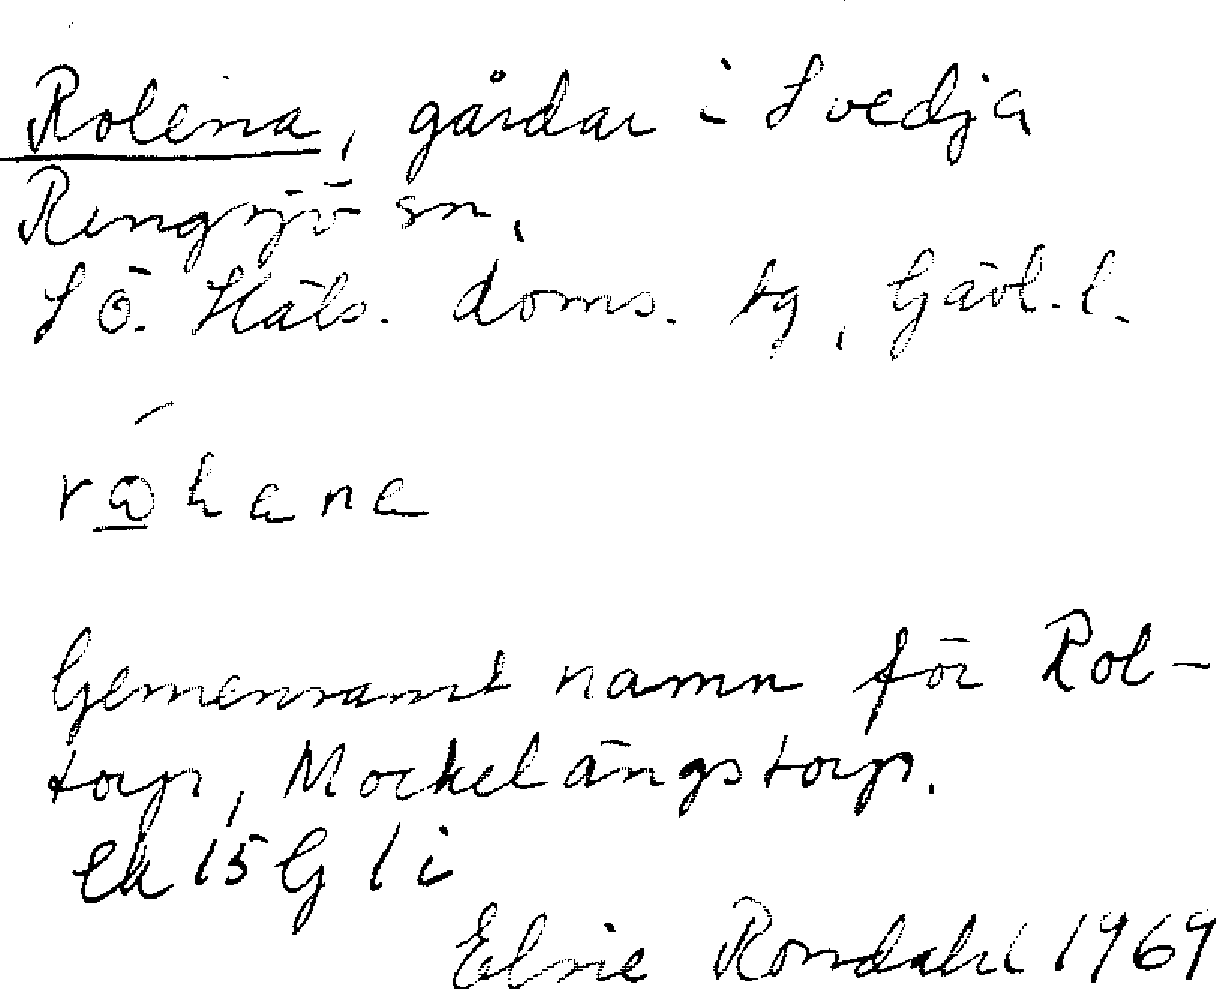 Rolena, gårdar i Svedja
Rengsjö sn,
Sö. Häls. doms. tg, Gävl. l.
råkana
Gemensamt namn för Rol-
torp, Mockelängstorp.
Ek 15G 1i
Elsie Rondahl 1969